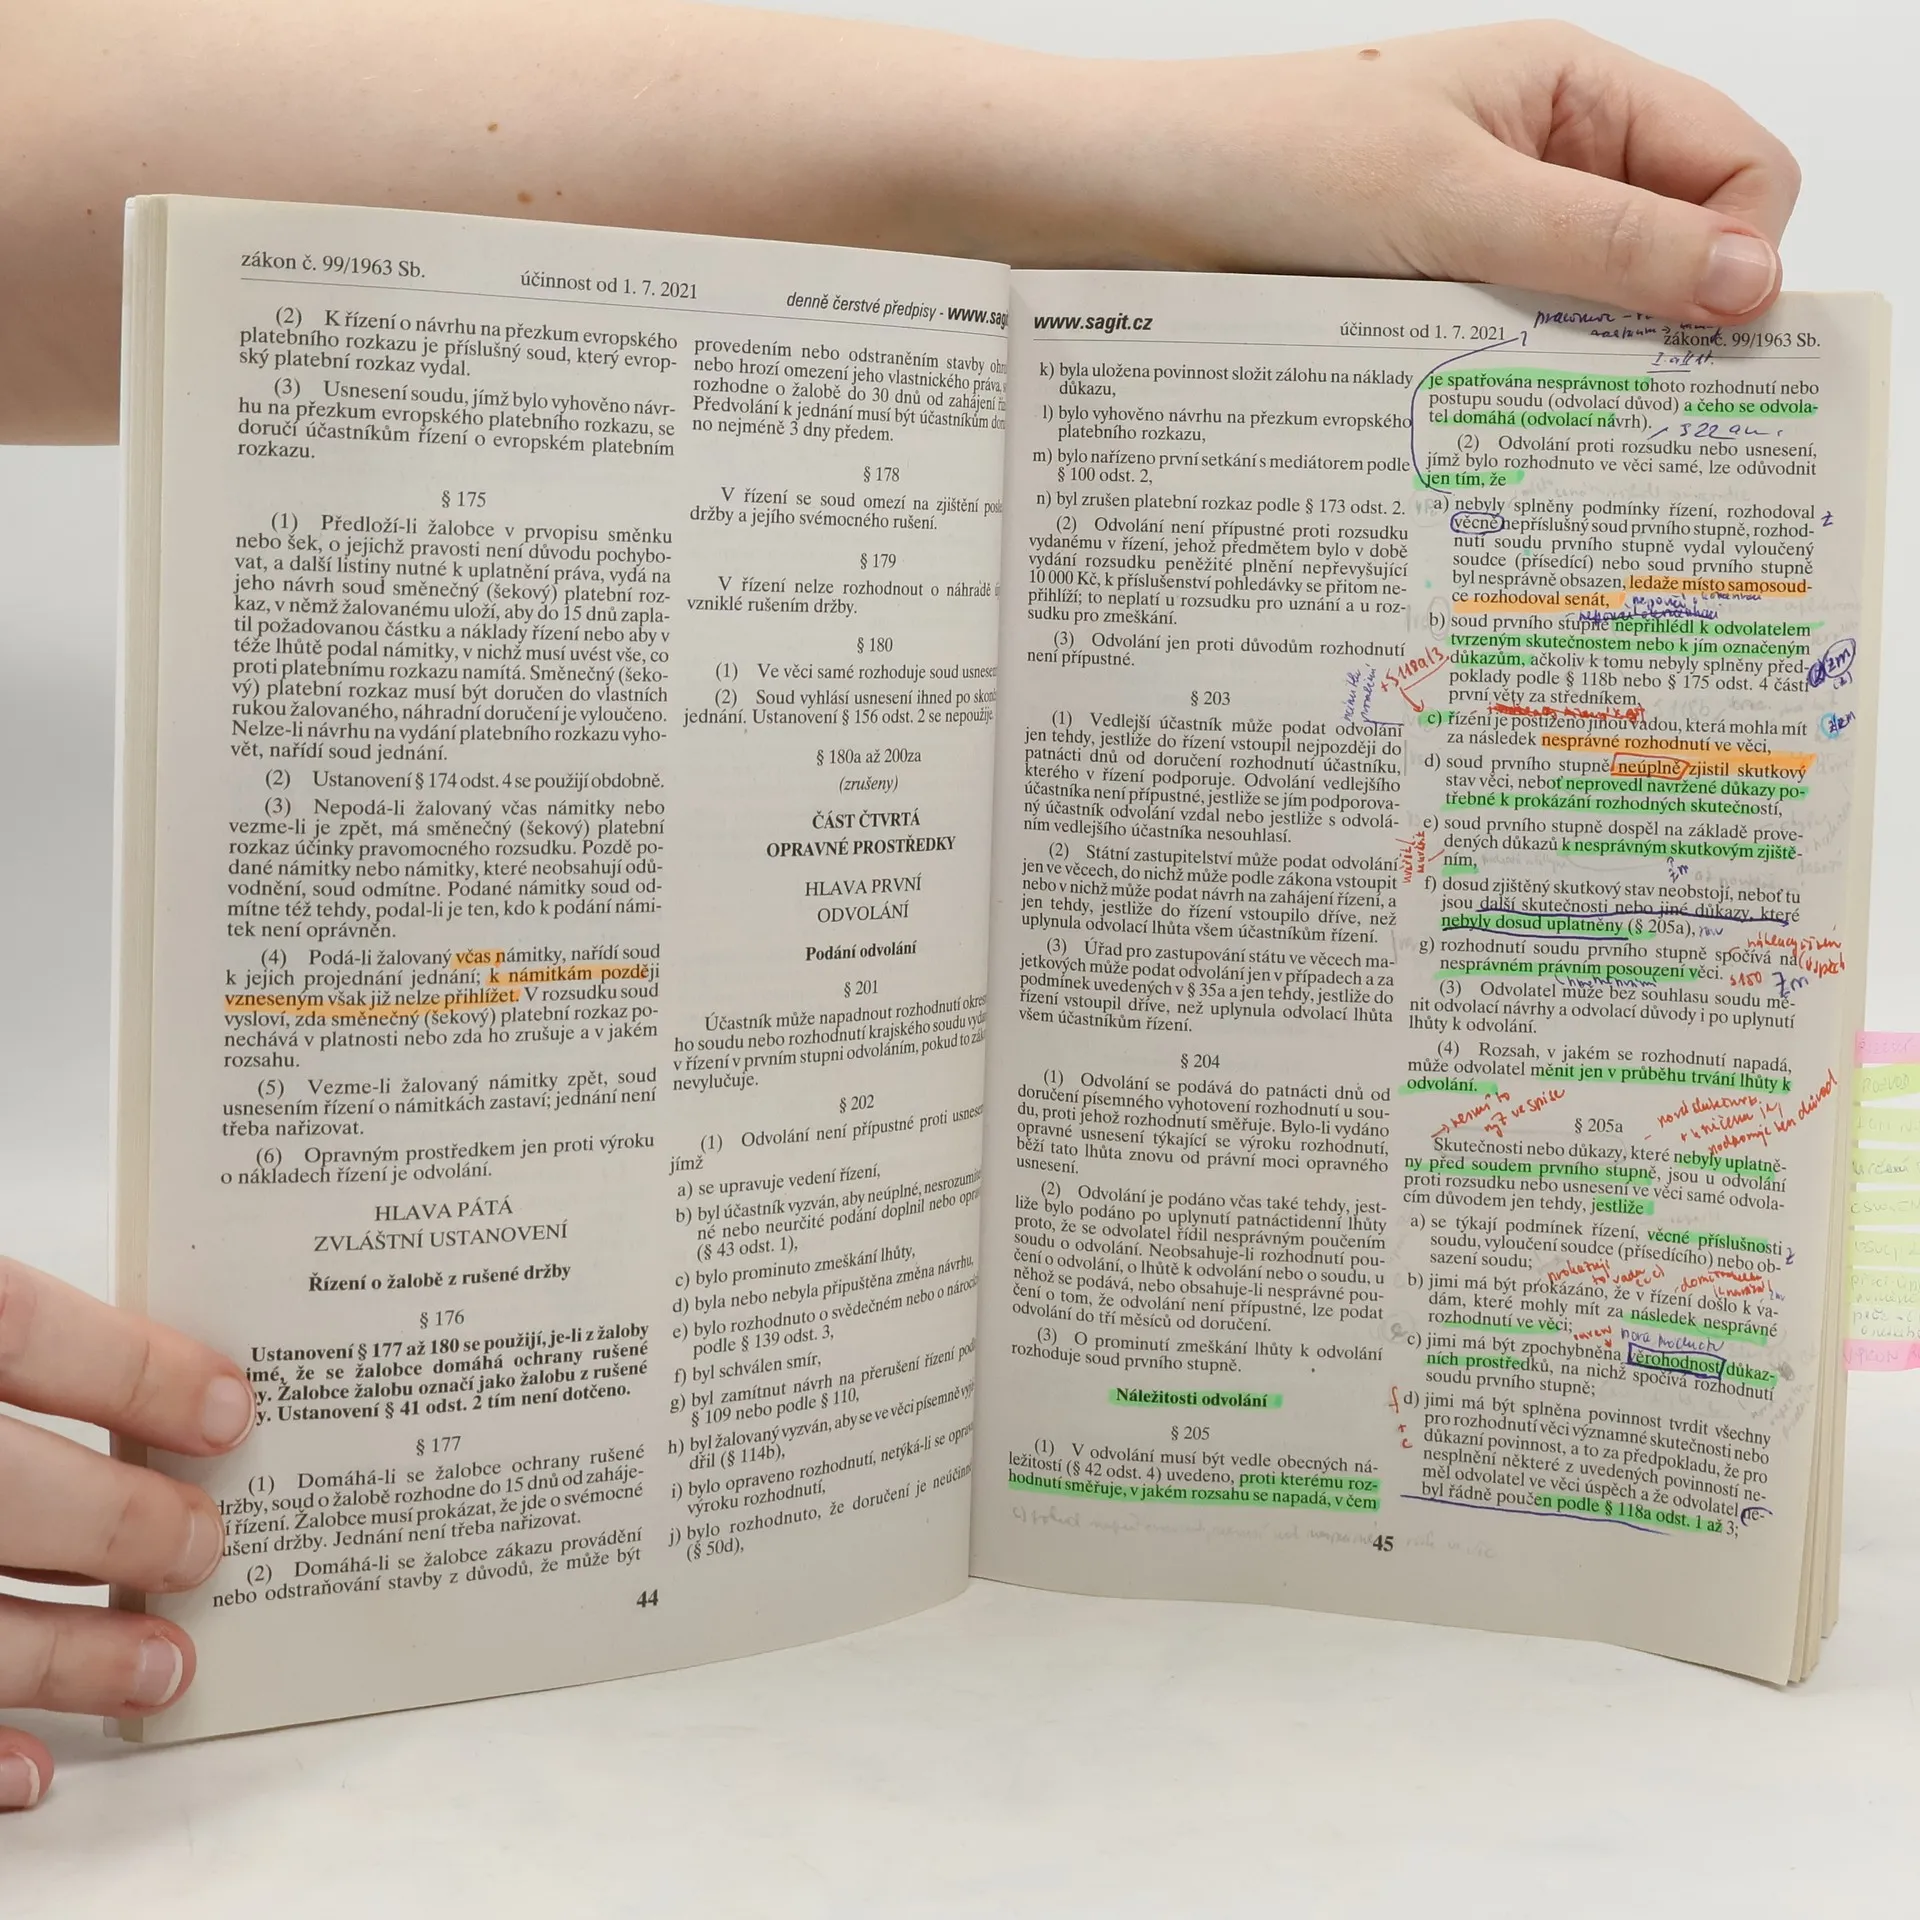 zákon č. 99/1963 Sb.
účinnost od 1. 7. 2021
denně čerstvé předpisy - www.sagi
(2) K řízení o návrhu na přezkum evropského
platebního rozkazu je příslušný soud, který evrop-
ský platební rozkaz vydal.
(3) Usnesení soudu, jímž bylo vyhověno návr-
hu na přezkum evropského platebního rozkazu, se
doručí účastníkům řízení o evropském platebním
rozkazu.
§ 175
(1) Předloží-li žalobce v prvopisu směnku
nebo šek, o jejichž pravosti není důvodu pochybo-
vat, a další listiny nutné k uplatnění práva, vydá na
jeho návrh soud směnečný (šekový) platební roz-
kaz, v němž žalovanému uloží, aby do 15 dnů zapla-
til požadovanou částku a náklady řízení nebo aby v
téže lhůtě podal námitky, v nichž musí uvést vše, co
proti platebnímu rozkazu namítá. Směnečný (šeko-
vý) platební rozkaz musí být doručen do vlastních
rukou žalovaného, náhradní doručení je vyloučeno.
Nelze-li návrhu na vydání platebního rozkazu vyho-
vět, nařídí soud jednání.
(2) Ustanovení § 174 odst. 4 se použijí obdobně.
(3) Nepodá-li žalovaný včas námitky nebo
vezme-li je zpět, má směnečný (šekový) platební
rozkaz účinky pravomocného rozsudku. Pozdě po-
dané námitky nebo námitky, které neobsahují odů-
vodnění, soud odmítne. Podané námitky soud od-
mítne též tehdy, podal-li je ten, kdo k podání námi-
tek není oprávněn.
(4) Podá-li žalovaný včas námitky, nařídí soud
k jejich projednání jednání; k námitkám později
vzneseným však již nelze přihlížet. V rozsudku soud
vysloví, zda směnečný (šekový) platební rozkaz po-
nechává v platnosti nebo zda ho zrušuje a v jakém
rozsahu.
(5) Vezme-li žalovaný námitky zpět, soud
usnesením řízení o námitkách zastaví; jednání není
třeba nařizovat.
(6) Opravným prostředkem jen proti výroku
o nákladech řízení je odvolání.
HLAVA PÁTÁ
ZVLÁŠTNÍ USTANOVENÍ
Řízení o žalobě z rušené držby
§ 176
Ustanovení § 177 až 180 se použijí, je-li z žaloby
jmé, že se žalobce domáhá ochrany rušené
y. Žalobce žalobu označí jako žalobu z rušené
y. Ustanovení § 41 odst. 2 tím není dotčeno.
§ 177
(1) Domáhá-li se žalobce ochrany rušené
držby, soud o žalobě rozhodne do 15 dnů od zaháje-
í řízení. Žalobce musí prokázat, že jde o svémocné
ušení držby. Jednání není třeba nařizovat.
(2) Domáhá-li se žalobce zákazu provádění
nebo odstraňování stavby z důvodů, že může být
provedením nebo odstraněním stavby ohr
nebo hrozí omezení jeho vlastnického práva,
rozhodne o žalobě do 30 dnů od zahájení
Předvolání k jednání musí být účastníkům
no nejméně 3 dny předem.
§ 178
V řízení se soud omezí na zjištění
držby a jejího svémocného rušení.
§ 179
V řízení nelze rozhodnout o náhradě
vzniklé rušením držby.
§ 180
(1) Ve věci samé rozhoduje soud usnesen
(2) Soud vyhlásí usnesení ihned po skon
jednání. Ustanovení § 156 odst. 2 se nepoužije
§ 180a až 200za
(zrušeny)
ČÁST ČTVRTÁ
OPRAVNÉ PROSTŘEDKY
HLAVA PRVNÍ
ODVOLÁNÍ
Podání odvolání
§ 201
Účastník může napadnout rozhodnutí okres
ho soudu nebo rozhodnutí krajského soudu
v řízení v prvním stupni odvoláním, pokud to
nevylučuje.
§ 202
(1) Odvolání není přípustné proti usnese
jímž
a) se upravuje vedení řízení,
b) byl účastník vyzván, aby neúplné, nesrozumi
né nebo neurčité podání doplnil nebo
(§ 43 odst. 1),
c) bylo prominuto zmeškání lhůty,
d) byla nebo nebyla připuštěna změna návrhu,
e) bylo rozhodnuto o svědečném nebo o
podle § 139 odst. 3,
f) byl schválen smír,
g) byl zamítnut návrh na přerušení řízení
§ 109 nebo podle § 110,
h) byl žalovaný vyzván, aby se ve věci písemně
dřil (§ 114b),
i) bylo opraveno rozhodnutí, netýká-li se
výroku rozhodnutí,
j) bylo rozhodnuto, že doručení je neúčinn
(§ 50d),
44
www.sagit.cz
účinnost od 1. 7. 2021
zákon č. 99/1963 Sb.
k) byla uložena povinnost složit zálohu na náklady
důkazu,
l) bylo vyhověno návrhu na přezkum evropského
platebního rozkazu,
m) bylo nařízeno první setkání s mediátorem podle
§ 100 odst. 2,
n) byl zrušen platební rozkaz podle § 173 odst. 2.
(2) Odvolání není přípustné proti rozsudku
vydanému v řízení, jehož předmětem bylo v době
vydání rozsudku peněžité plnění nepřevyšující
10 000 Kč, k příslušenství pohledávky se přitom ne-
přihlíží; to neplatí u rozsudku pro uznání a u roz-
sudku pro zmeškání.
(3) Odvolání jen proti důvodům rozhodnutí
není přípustné.
§ 203
(1) Vedlejší účastník může podat odvolání
jen tehdy, jestliže do řízení vstoupil nejpozději do
patnácti dnů od doručení rozhodnutí účastníku,
kterého v řízení podporuje. Odvolání vedlejšího
účastníka není přípustné, jestliže se jím podporova-
ný účastník odvolání vzdal nebo jestliže s odvolá-
ním vedlejšího účastníka nesouhlasí.
(2) Státní zastupitelství může podat odvolání
jen ve věcech, do nichž může podle zákona vstoupit
nebo v nichž může podat návrh na zahájení řízení, a
jen tehdy, jestliže do řízení vstoupilo dříve, než
uplynula odvolací lhůta všem účastníkům řízení.
(3) Úřad pro zastupování státu ve věcech ma-
jetkových může podat odvolání jen v případech a za
podmínek uvedených v § 35a a jen tehdy, jestliže do
řízení vstoupil dříve, než uplynula odvolací lhůta
všem účastníkům řízení.
§ 204
(1) Odvolání se podává do patnácti dnů od
doručení písemného vyhotovení rozhodnutí u sou-
du, proti jehož rozhodnutí směřuje. Bylo-li vydáno
opravné usnesení týkající se výroku rozhodnutí,
běží tato lhůta znovu od právní moci opravného
usnesení.
(2) Odvolání je podáno včas také tehdy, jest-
liže bylo podáno po uplynutí patnáctidenní lhůty
proto, že se odvolatel řídil nesprávným poučením
soudu o odvolání. Neobsahuje-li rozhodnutí pou-
čení o odvolání, o lhůtě k odvolání nebo o soudu, u
něhož se podává, nebo obsahuje-li nesprávné pou-
čení o tom, že odvolání není přípustné, lze podat
odvolání do tří měsíců od doručení.
(3) O prominutí zmeškání lhůty k odvolání
rozhoduje soud prvního stupně.
Náležitosti odvolání
§ 205
(1) V odvolání musí být vedle obecných ná-
ležitostí (§ 42 odst. 4) uvedeno, proti kterému roz-
hodnutí směřuje, v jakém rozsahu se napadá, v čem
je spatřována nesprávnost tohoto rozhodnutí nebo
postupu soudu (odvolací důvod) a čeho se odvola-
tel domáhá (odvolací návrh).
(2) Odvolání proti rozsudku nebo usnesení,
jímž bylo rozhodnuto ve věci samé, lze odůvodnit
jen tím, že
a) nebyly splněny podmínky řízení, rozhodoval
věcně nepříslušný soud prvního stupně, rozhod-
nutí soudu prvního stupně vydal vyloučený
soudce (přísedící) nebo soud prvního stupně
byl nesprávně obsazen, ledaže místo samosoud-
ce rozhodoval senát,
b) soud prvního stupně nepřihlédl k odvolatelem
tvrzeným skutečnostem nebo k jím označeným
důkazům, ačkoliv k tomu nebyly splněny před-
poklady podle § 118b nebo § 175 odst. 4 části
první věty za středníkem,
+ § 118a/3
c) řízení je postiženo jinou vadou, která mohla mít
za následek nesprávné rozhodnutí ve věci,
d) soud prvního stupně neúplně zjistil skutkový
stav věci, neboť neprovedl navržené důkazy po-
třebné k prokázání rozhodných skutečností,
e) soud prvního stupně dospěl na základě prove-
dených důkazů k nesprávným skutkovým zjiště-
ním,
f) dosud zjištěný skutkový stav neobstojí, neboť tu
jsou další skutečnosti nebo jiné důkazy, které
nebyly dosud uplatněny (§ 205a),
g) rozhodnutí soudu prvního stupně spočívá na
nesprávném právním posouzení věci.
(3) Odvolatel může bez souhlasu soudu mě-
nit odvolací návrhy a odvolací důvody i po uplynutí
lhůty k odvolání.
(4) Rozsah, v jakém se rozhodnutí napadá,
může odvolatel měnit jen v průběhu trvání lhůty k
odvolání.
§ 205a
Skutečnosti nebo důkazy, které nebyly uplatně-
ny před soudem prvního stupně, jsou u odvolání
proti rozsudku nebo usnesení ve věci samé odvola-
cím důvodem jen tehdy, jestliže
a) se týkají podmínek řízení, věcné příslušnosti
soudu, vyloučení soudce (přísedícího) nebo ob-
sazení soudu;
b) jimi má být prokázáno, že v řízení došlo k va-
dám, které mohly mít za následek nesprávné
rozhodnutí ve věci;
c) jimi má být zpochybněna věrohodnost důkaz-
ních prostředků, na nichž spočívá rozhodnutí
soudu prvního stupně;
d) jimi má být splněna povinnost tvrdit všechny
pro rozhodnutí věci významné skutečnosti nebo
důkazní povinnost, a to za předpokladu, že pro
nesplnění některé z uvedených povinností ne-
měl odvolatel ve věci úspěch a že odvolatel ne-
byl řádně poučen podle § 118a odst. 1 až 3;
45